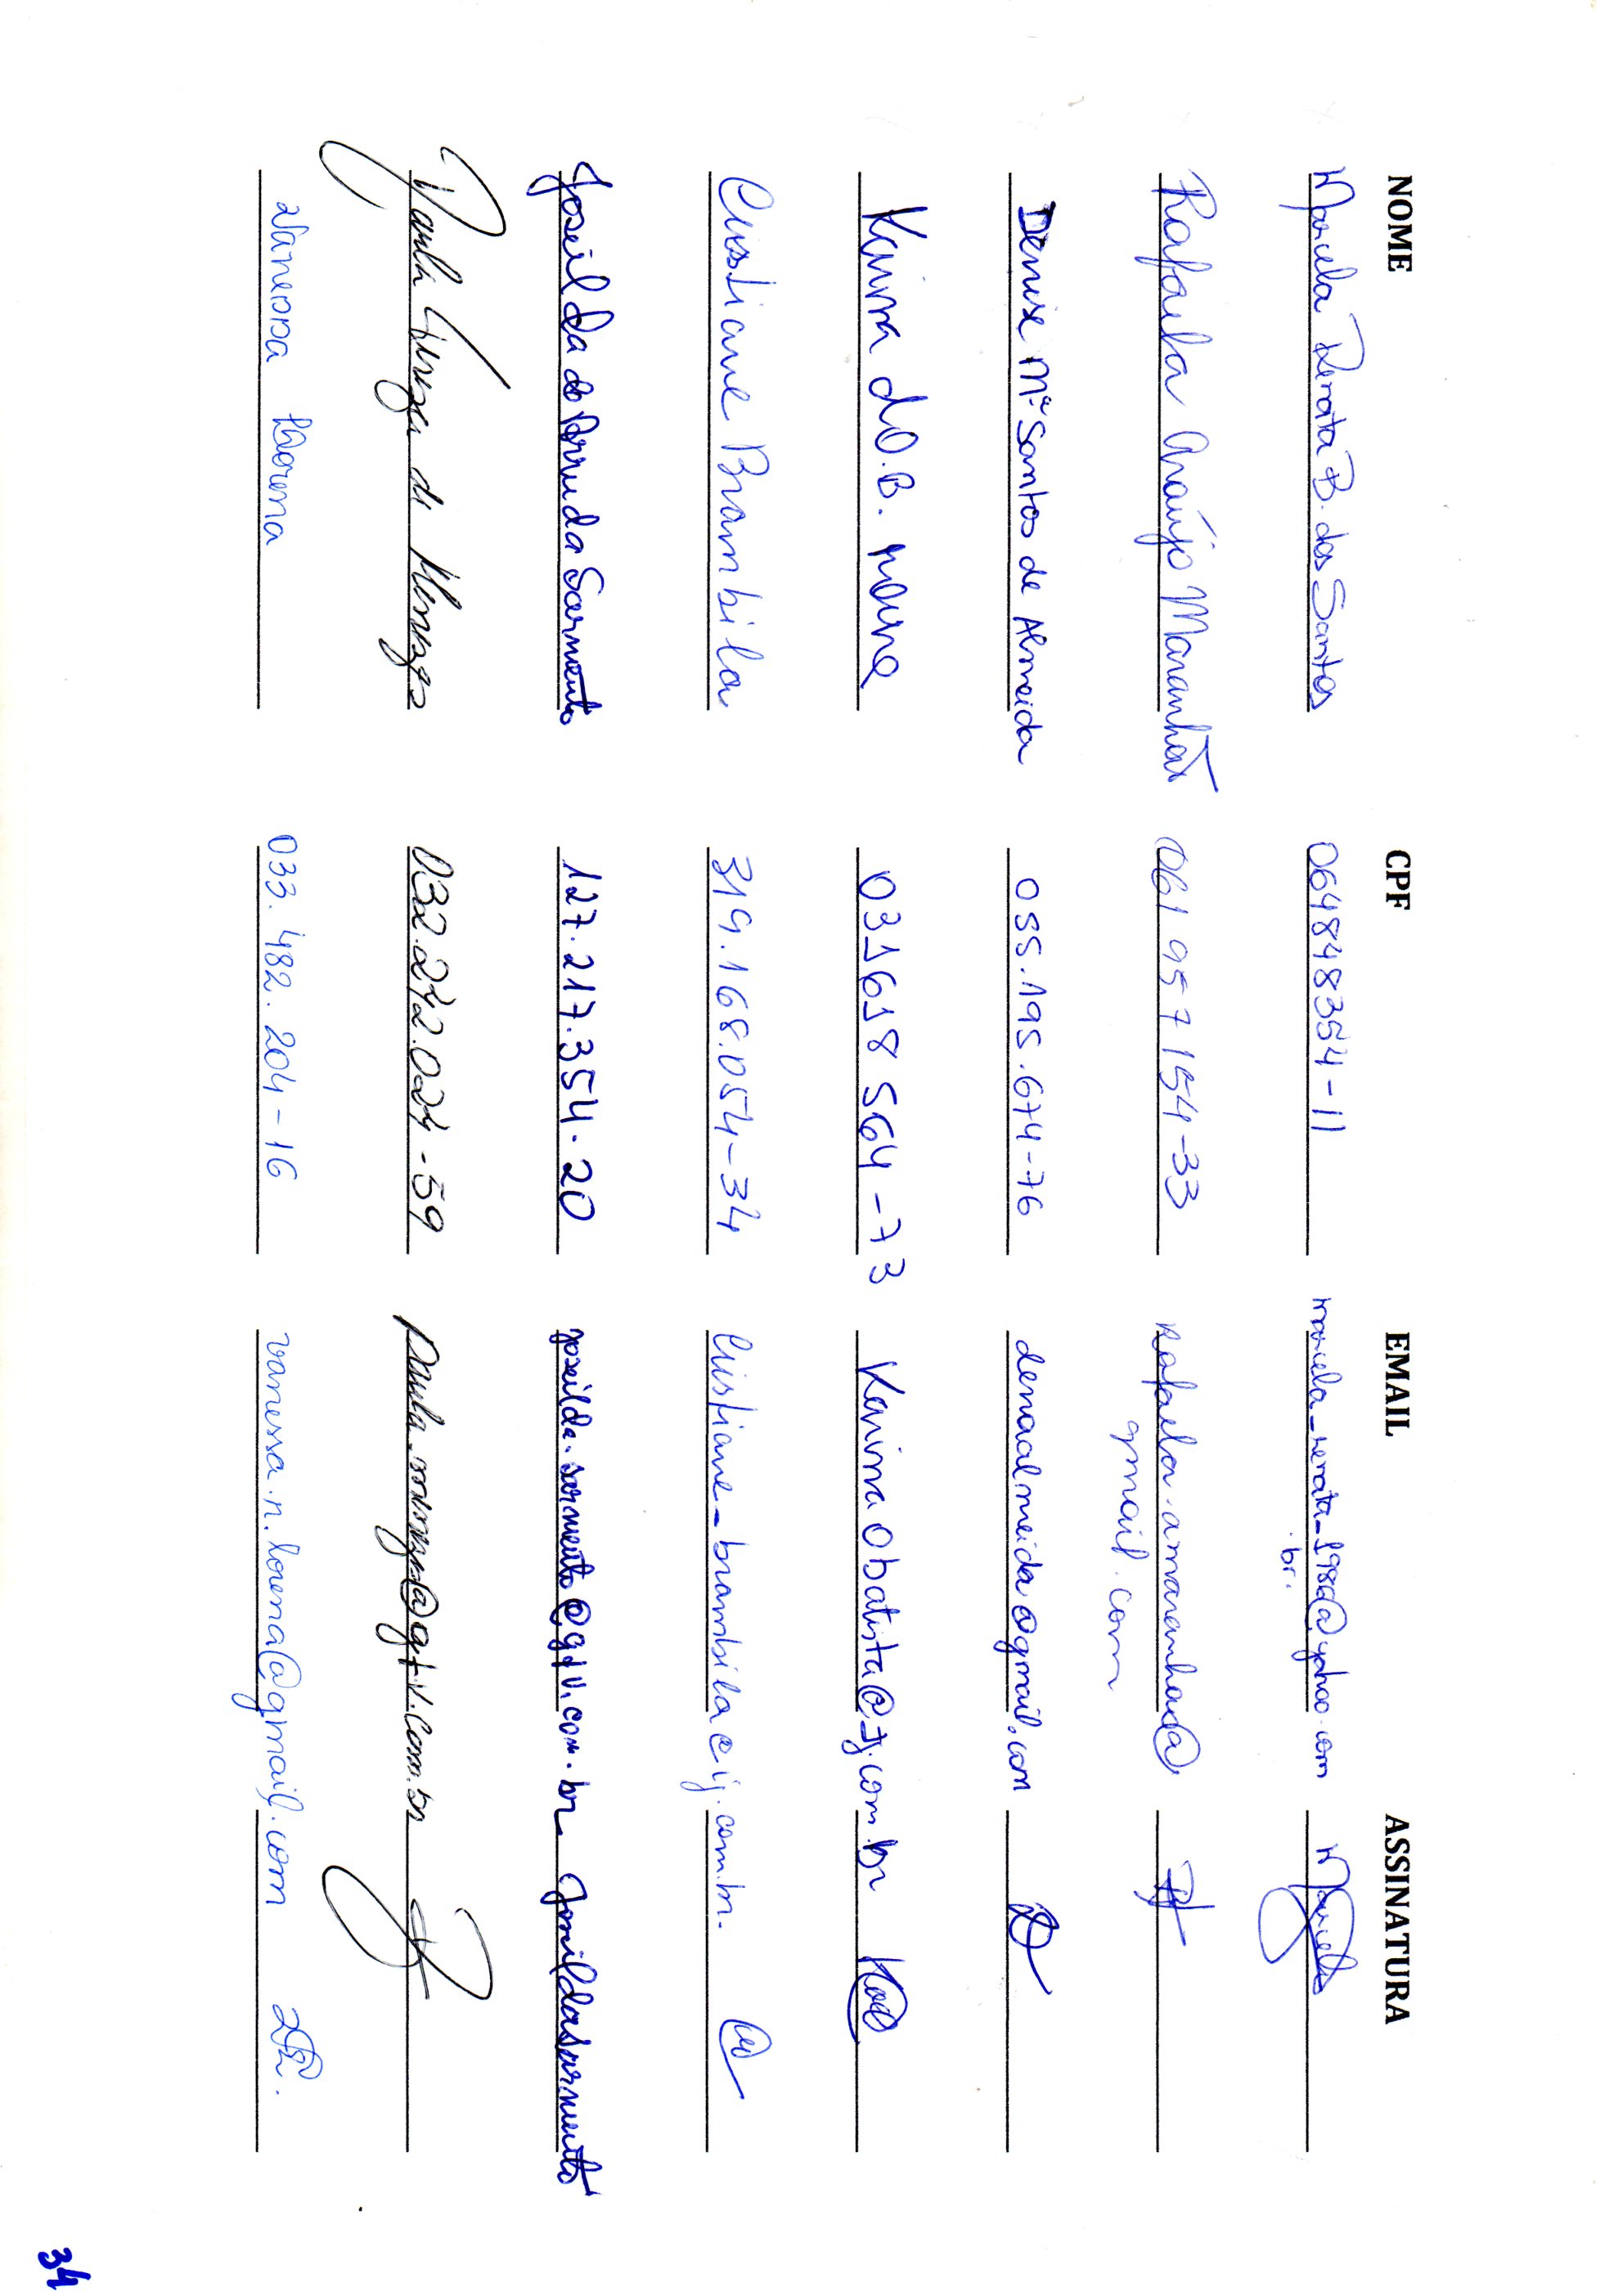 NOME CPF EMAIL ASSINATURA
Mariela Renata B. dos Santos 064848354-11 mariela_renata_198@yahoo.com
.br.
Rafaela Araújo Maranhão 061 957 154-33 Rafaela.amaranhao@
gmail.com
Denise Mª Santos de Almeida 055.195.674-76 denaalmeida@gmail.com
Karina d.O.B. 031618 564-73 Karinaobatista@tj.com.br
Cristiane Brambila 319.168.054-34 Cristiane_brambila@ij.com.br.
Joseilda de Arruda Sarmento 127.217.354.20 joseilda.sarmento@gjv.com.br Joseilda Sarmento
Paula de Menezes 032.242.024-59
Vanessa Lorena 033.482.204-16 vanessa.n.lorena@gmail.com
34